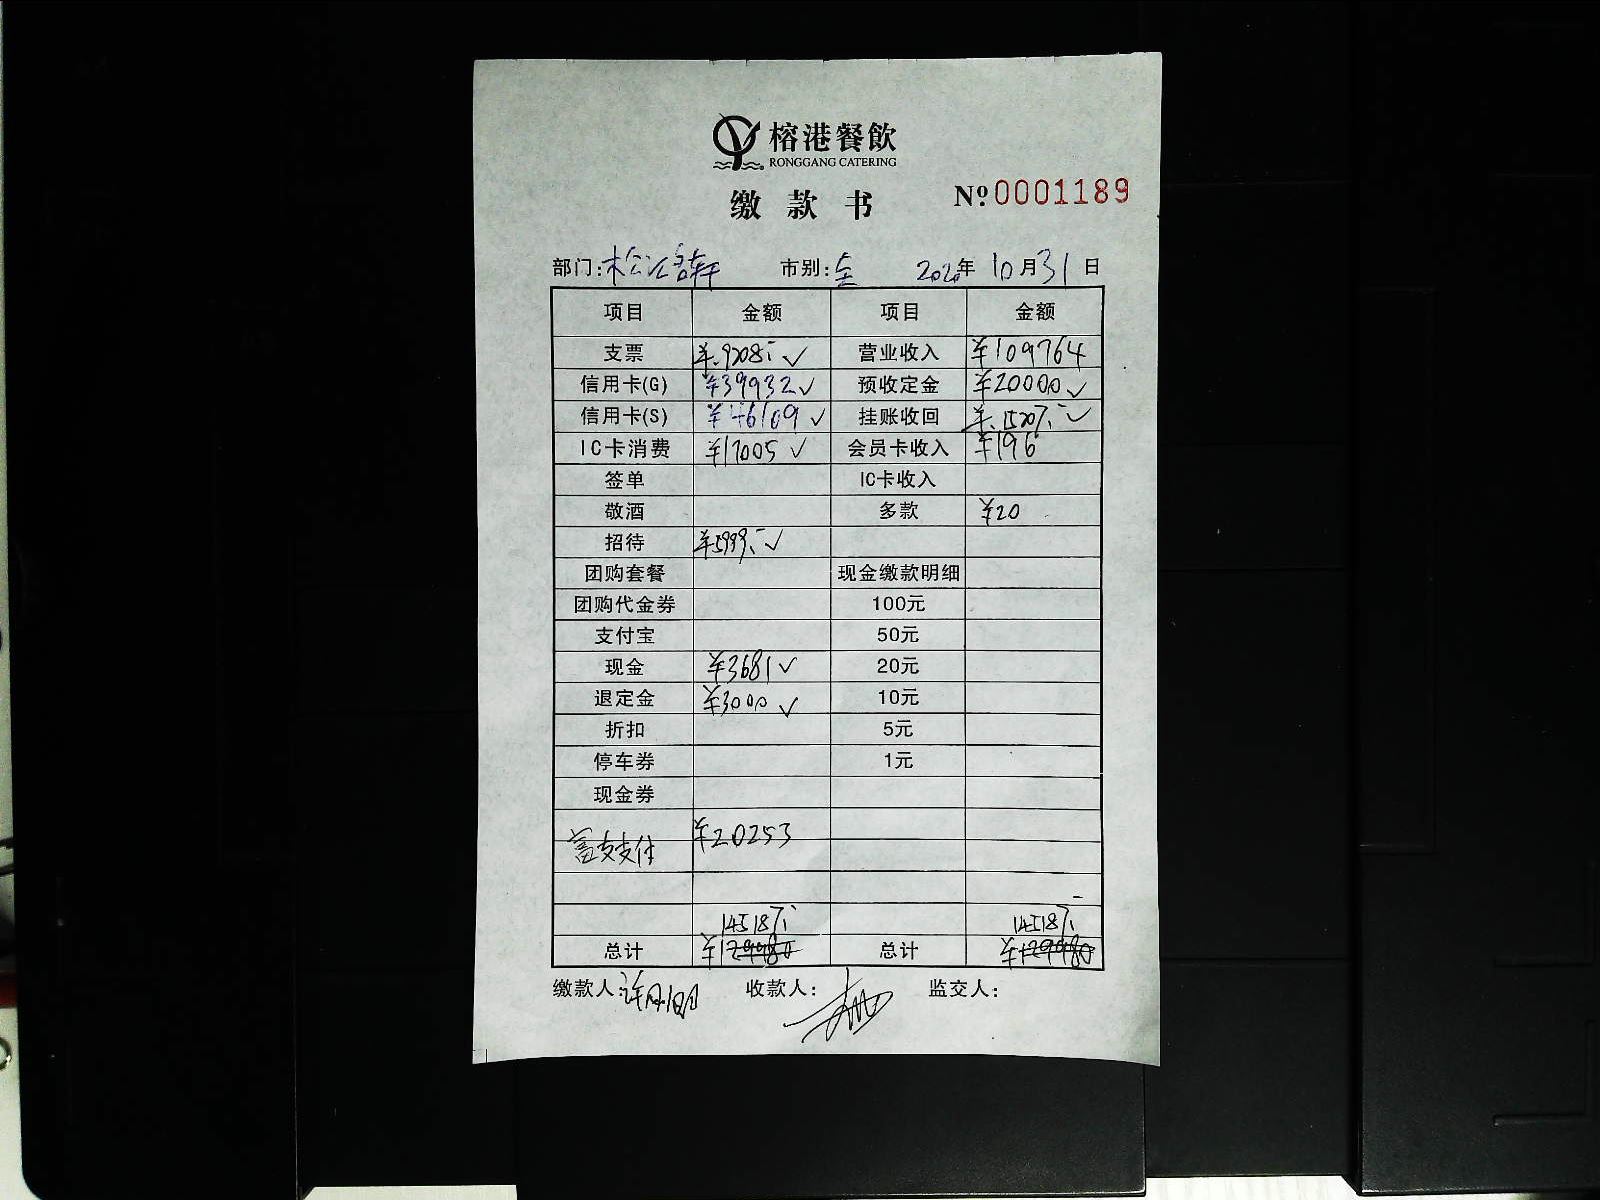 榕港餐飲
RONGGANG CATERING
缴款书 №0001189
部门: 市别:全 2020年10月31日
项目 金额 项目 金额
支票 ¥9208.- ✓ 营业收入 ¥109764
信用卡(G) ¥39932 ✓ 预收定金 ¥20000 ✓
信用卡(S) ¥46109 ✓ 挂账收回 ¥15207.- ✓
IC卡消费 ¥17005 ✓ 会员卡收入 ¥196
签单 IC卡收入
敬酒 多款 ¥20
招待 ¥5999.- ✓
团购套餐 现金缴款明细
团购代金券 100元
支付宝 50元
现金 ¥3681 ✓ 20元
退定金 ¥3000 ✓ 10元
折扣 5元
停车券 1元
现金券
富友支付 ¥20253
145187.- 145187.-
总计 ¥129980 总计 ¥129980
缴款人: 收款人: 监交人: